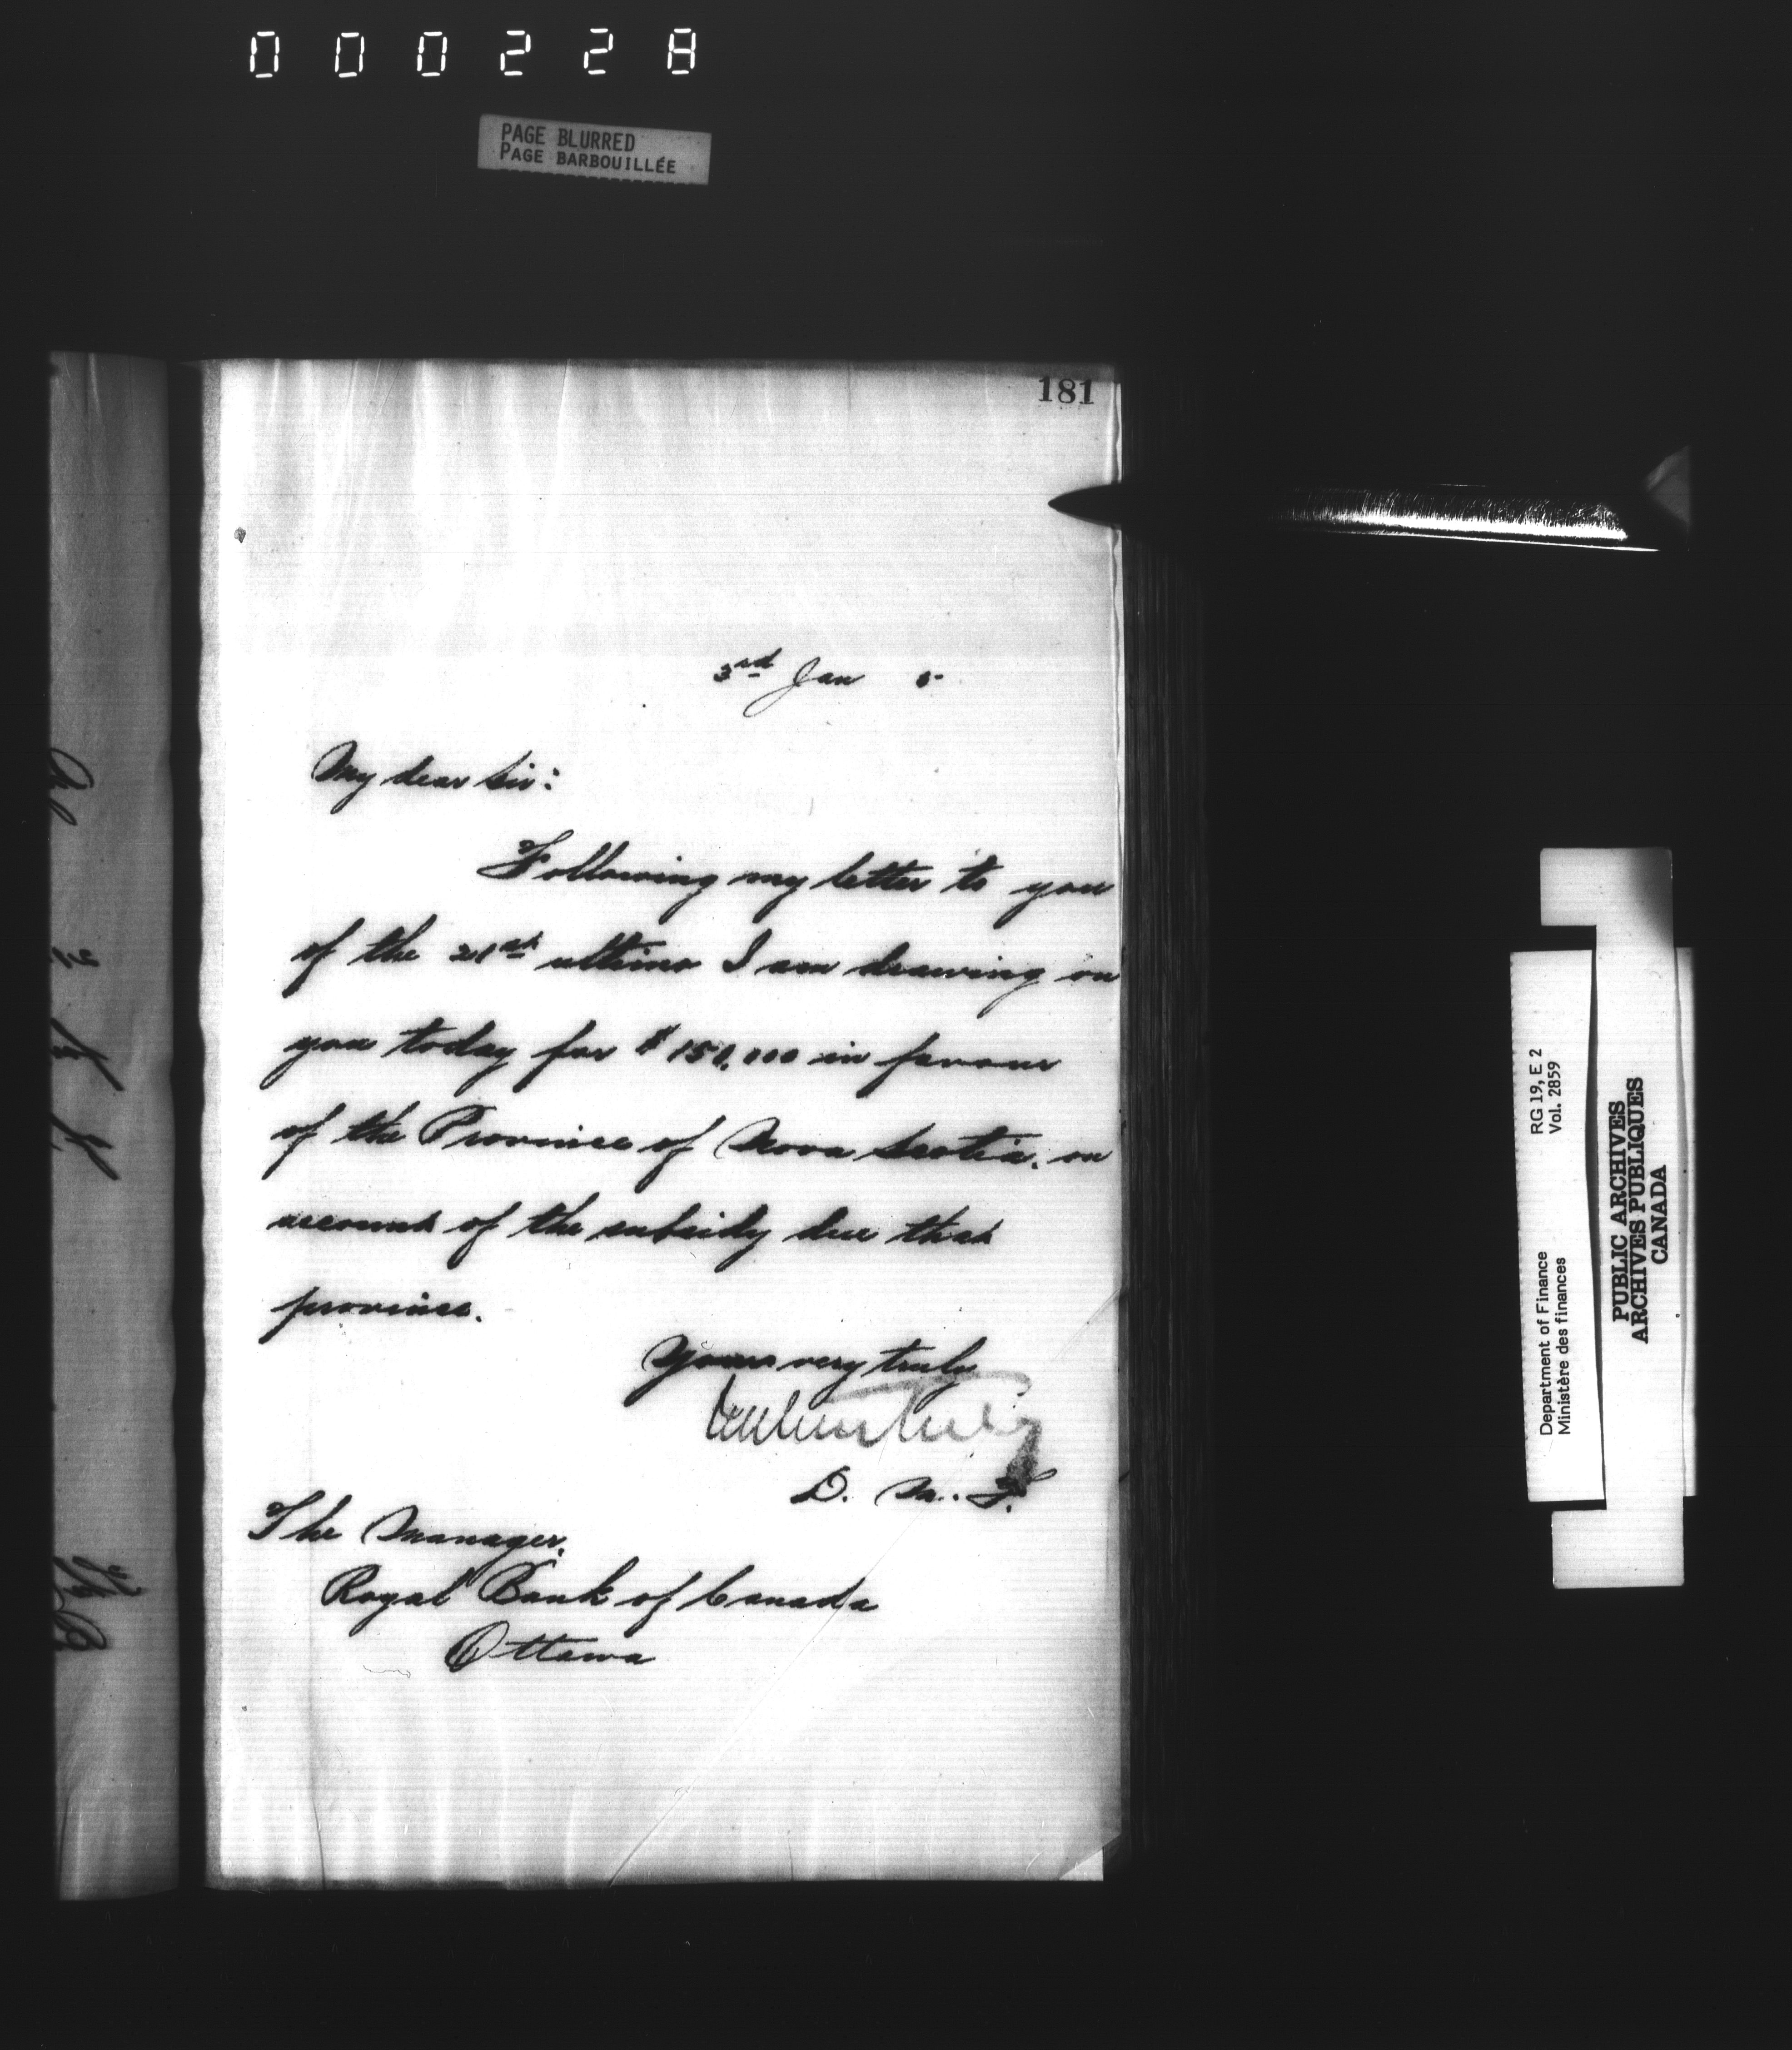 000228
PAGE BLURRED
PAGE BARBOUILLÉE
181
3rd Jan 5
My dear Sir:
Following my letter to you
of the 21st ultimo I am drawing on
you today for $150,000 in favour
of the Province of Nova Scotia, on
account of the subsidy due that
province.
Yours very truly
D. M. F.
The Manager,
Royal Bank of Canada
Ottawa
Department of Finance RG 19, E 2
Ministère des finances Vol. 2859
PUBLIC ARCHIVES
ARCHIVES PUBLIQUES
CANADA